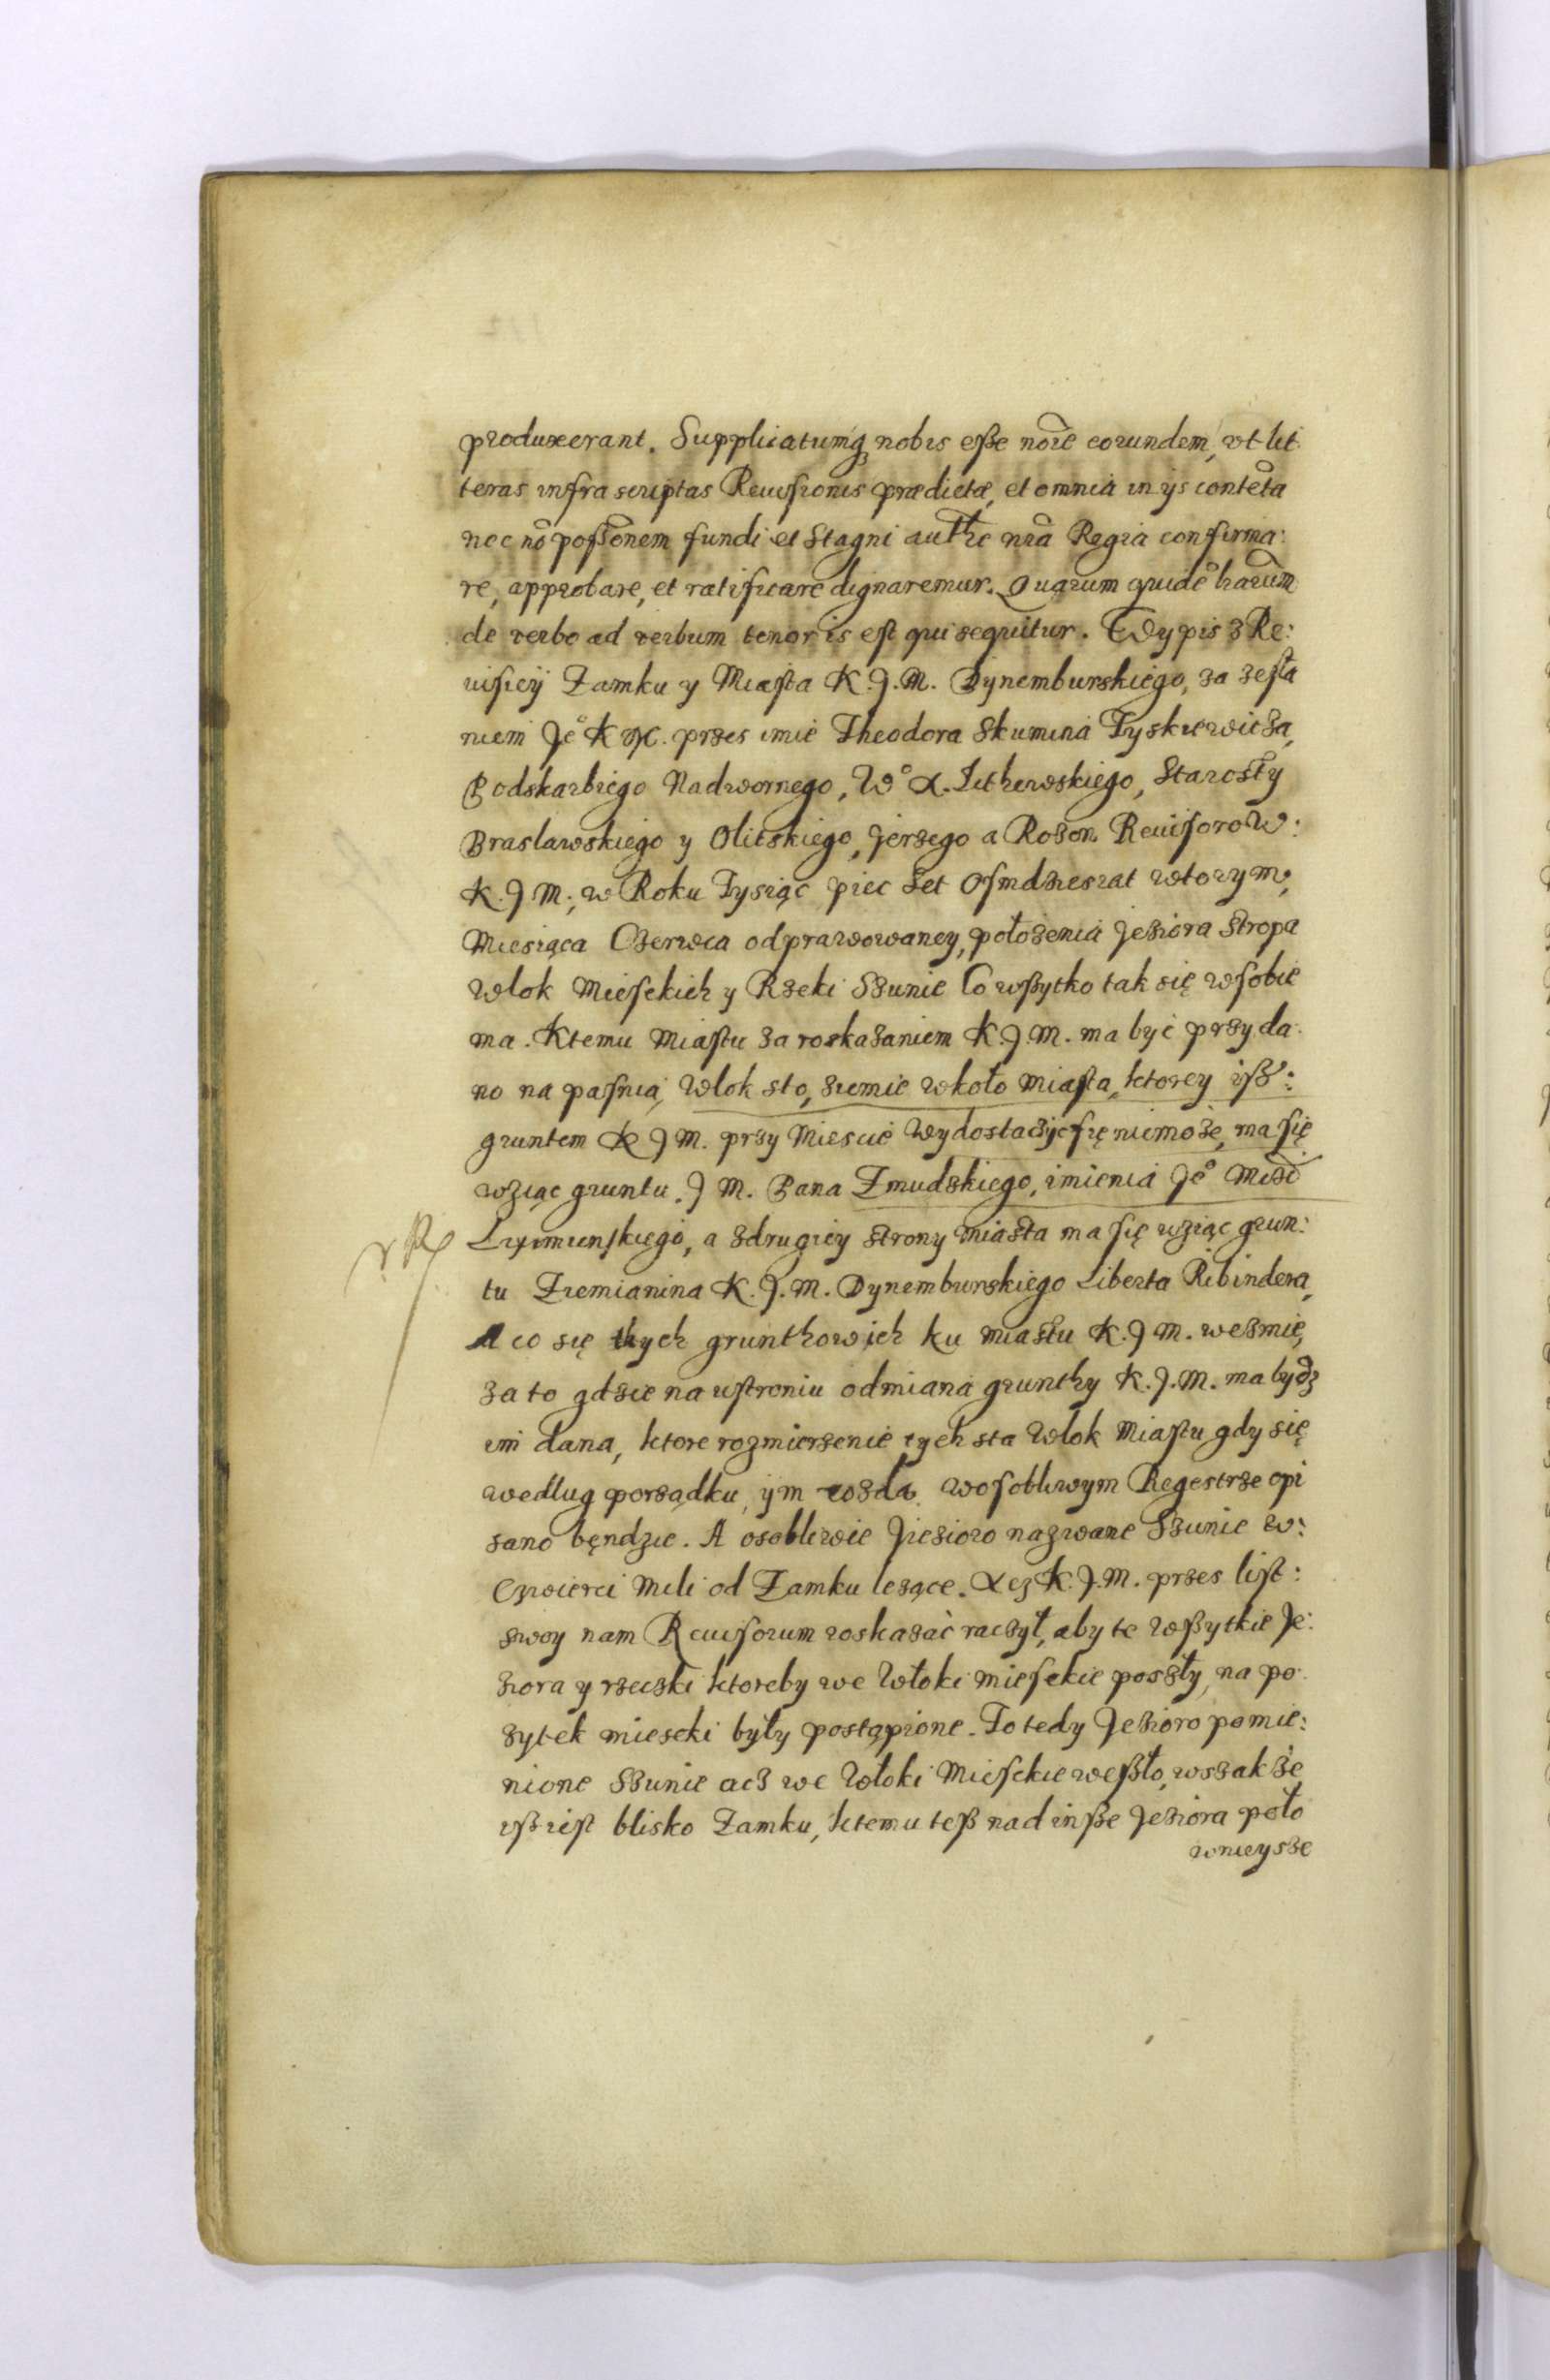 produxerant. Supplicatumq3 nobis eße no͠ie eorundem, vt lit:
teras infra scriptas Reuisionis prædictæ, et omnia in ijs conte͠ta
nec no͠ poßo͠nem fundi et Stagni autht͠e nr͠a Regia confirma:
re, approbare, et ratificare dignaremur. Quarum quide͠ l͠rarum
de verbo ad verbum tenor is est qui sequitur. Wypis z Re:
uisicÿ Zamku y Miasta K. J. M. Dynemburskiego, za zesła
niem Je° K M. przes imie Theodora Skumina Tyskiewicza,
Podskarbiego Nadwornego, W° X. Lithewskiego, Starosty
Braslawskiego y Olitskiego, Jerzego a Rozen Reuisorow:
K. J M., w Roku Tysiąc piec Set Osmdziesiat wtorym,
Miesiąca Czerwca odprawowaney, położenia Jeziora Stropa
Wlok Miesckich y Rzeki Szunie Co wßytko tak się wsobie
ma. Ktemu Miastu za roskazaniem K. J. M. ma być przyda:
no na pasnią, Wlok sto, ziemie wkoło miasta, ktorey iß:
gruntem K J M. przy Miescie Wydostaczyć się niemoże, ma się
wziąc gruntu. J M. Pana Zmudskiego, imienia Je°
a zdrugiey strony miasta ma się wziąc grun:
tu Ziemianina K. J. M. Dynemburskiego Liberta Ribindera,
A co się thych grunthow ich ku miastu K. J M. wezmie,
za to gdzie na ustroniu odmiana grunthy K. J. M. ma bydz
im dana, ktore rozmierzenie tych sta Wlok Miastu gdy się
wedlug porządku, ÿm rozda wosobliwym Regestrze opi
sano będzie. A osobliwie Jiezioro nazwane Szunie w:
Czwierci Mili od Zamku leżące. K. J. M. przes list:
swoy nam Reuisorum roskazać raczył, aby te Wßytkie Je:
ziora y rzeczki ktoreby we Włoki miesckie poszły, na po:
żytek miescki były postąpione. To tedy Jezioro pomie:
nione Szunie acz we Włoki Miesckie weßło, wszakże
iß iest blisko Zamku, ktemu teß nad inße Jeziora poło
wnieysze